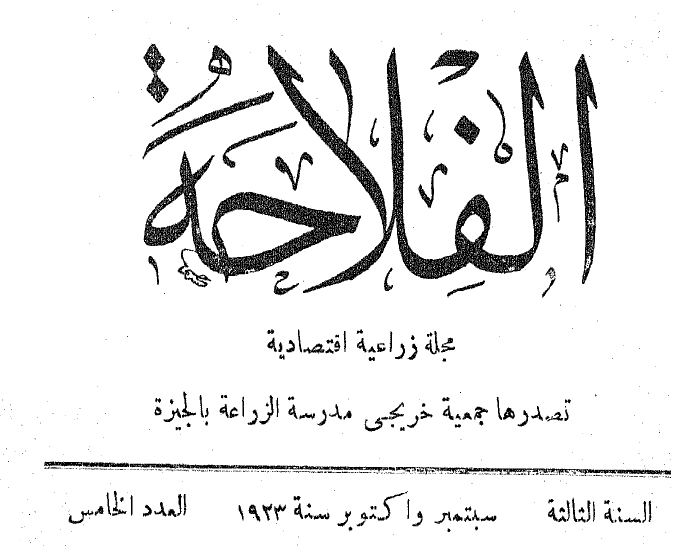 الفلاحة
مجلة زراعية اقتصادية
تصدرها جمعية خريجى مدرسة الزراعة بالجيزة
السنة الثالثة سبتمبر واكتوبر سنة ١٩٢٣ العدد الخامس